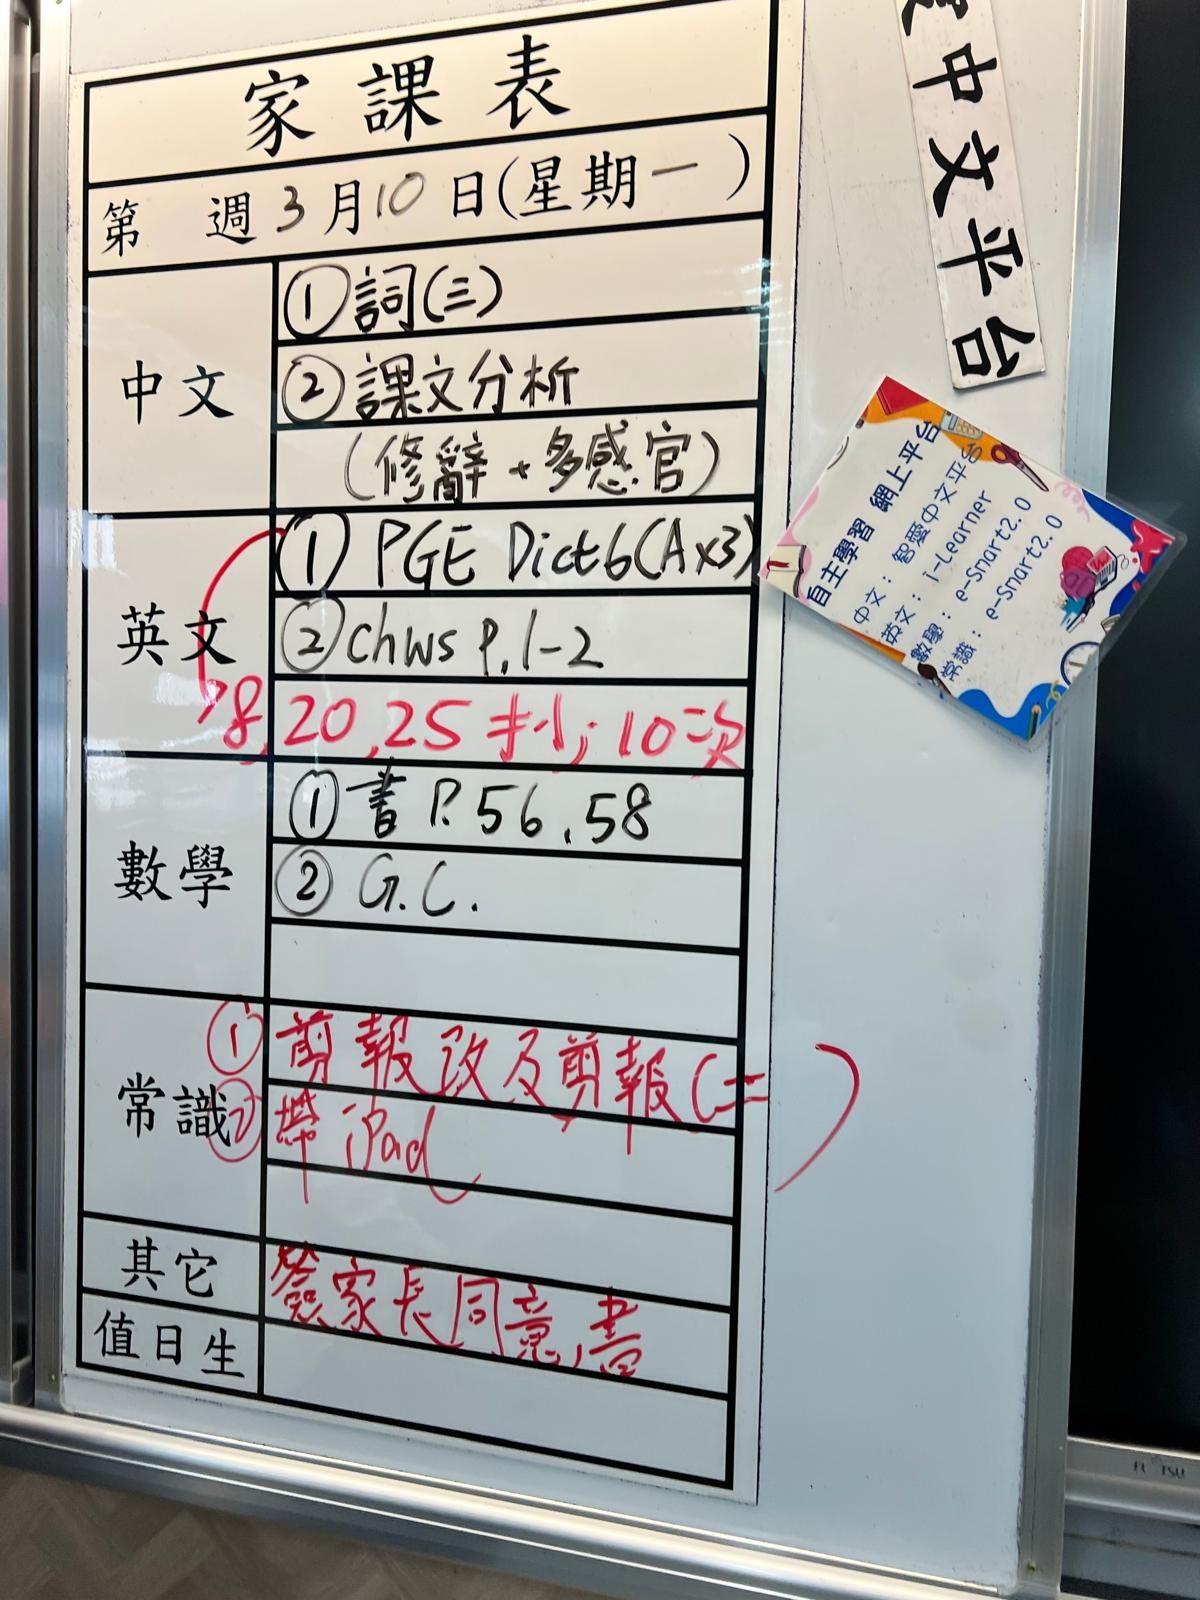 家課表
第 週 3月10日(星期一)
中文
①詞(三)
②課文分析
(修辭+多感官)
英文
① PGE Dict6(A×3)
②chws P.1-2
8,20,25 抄; 10次
數學
①書 P.56,58
② G.C.
常識
① 剪報改及剪報(二)
② 帶 iPad
其它
簽家長同意書
值日生
中文平台
自主學習 網上平台
中文: 智愛中文平台
英文: i-Learner
數學: e-Smart2.0
常識: e-Smart2.0